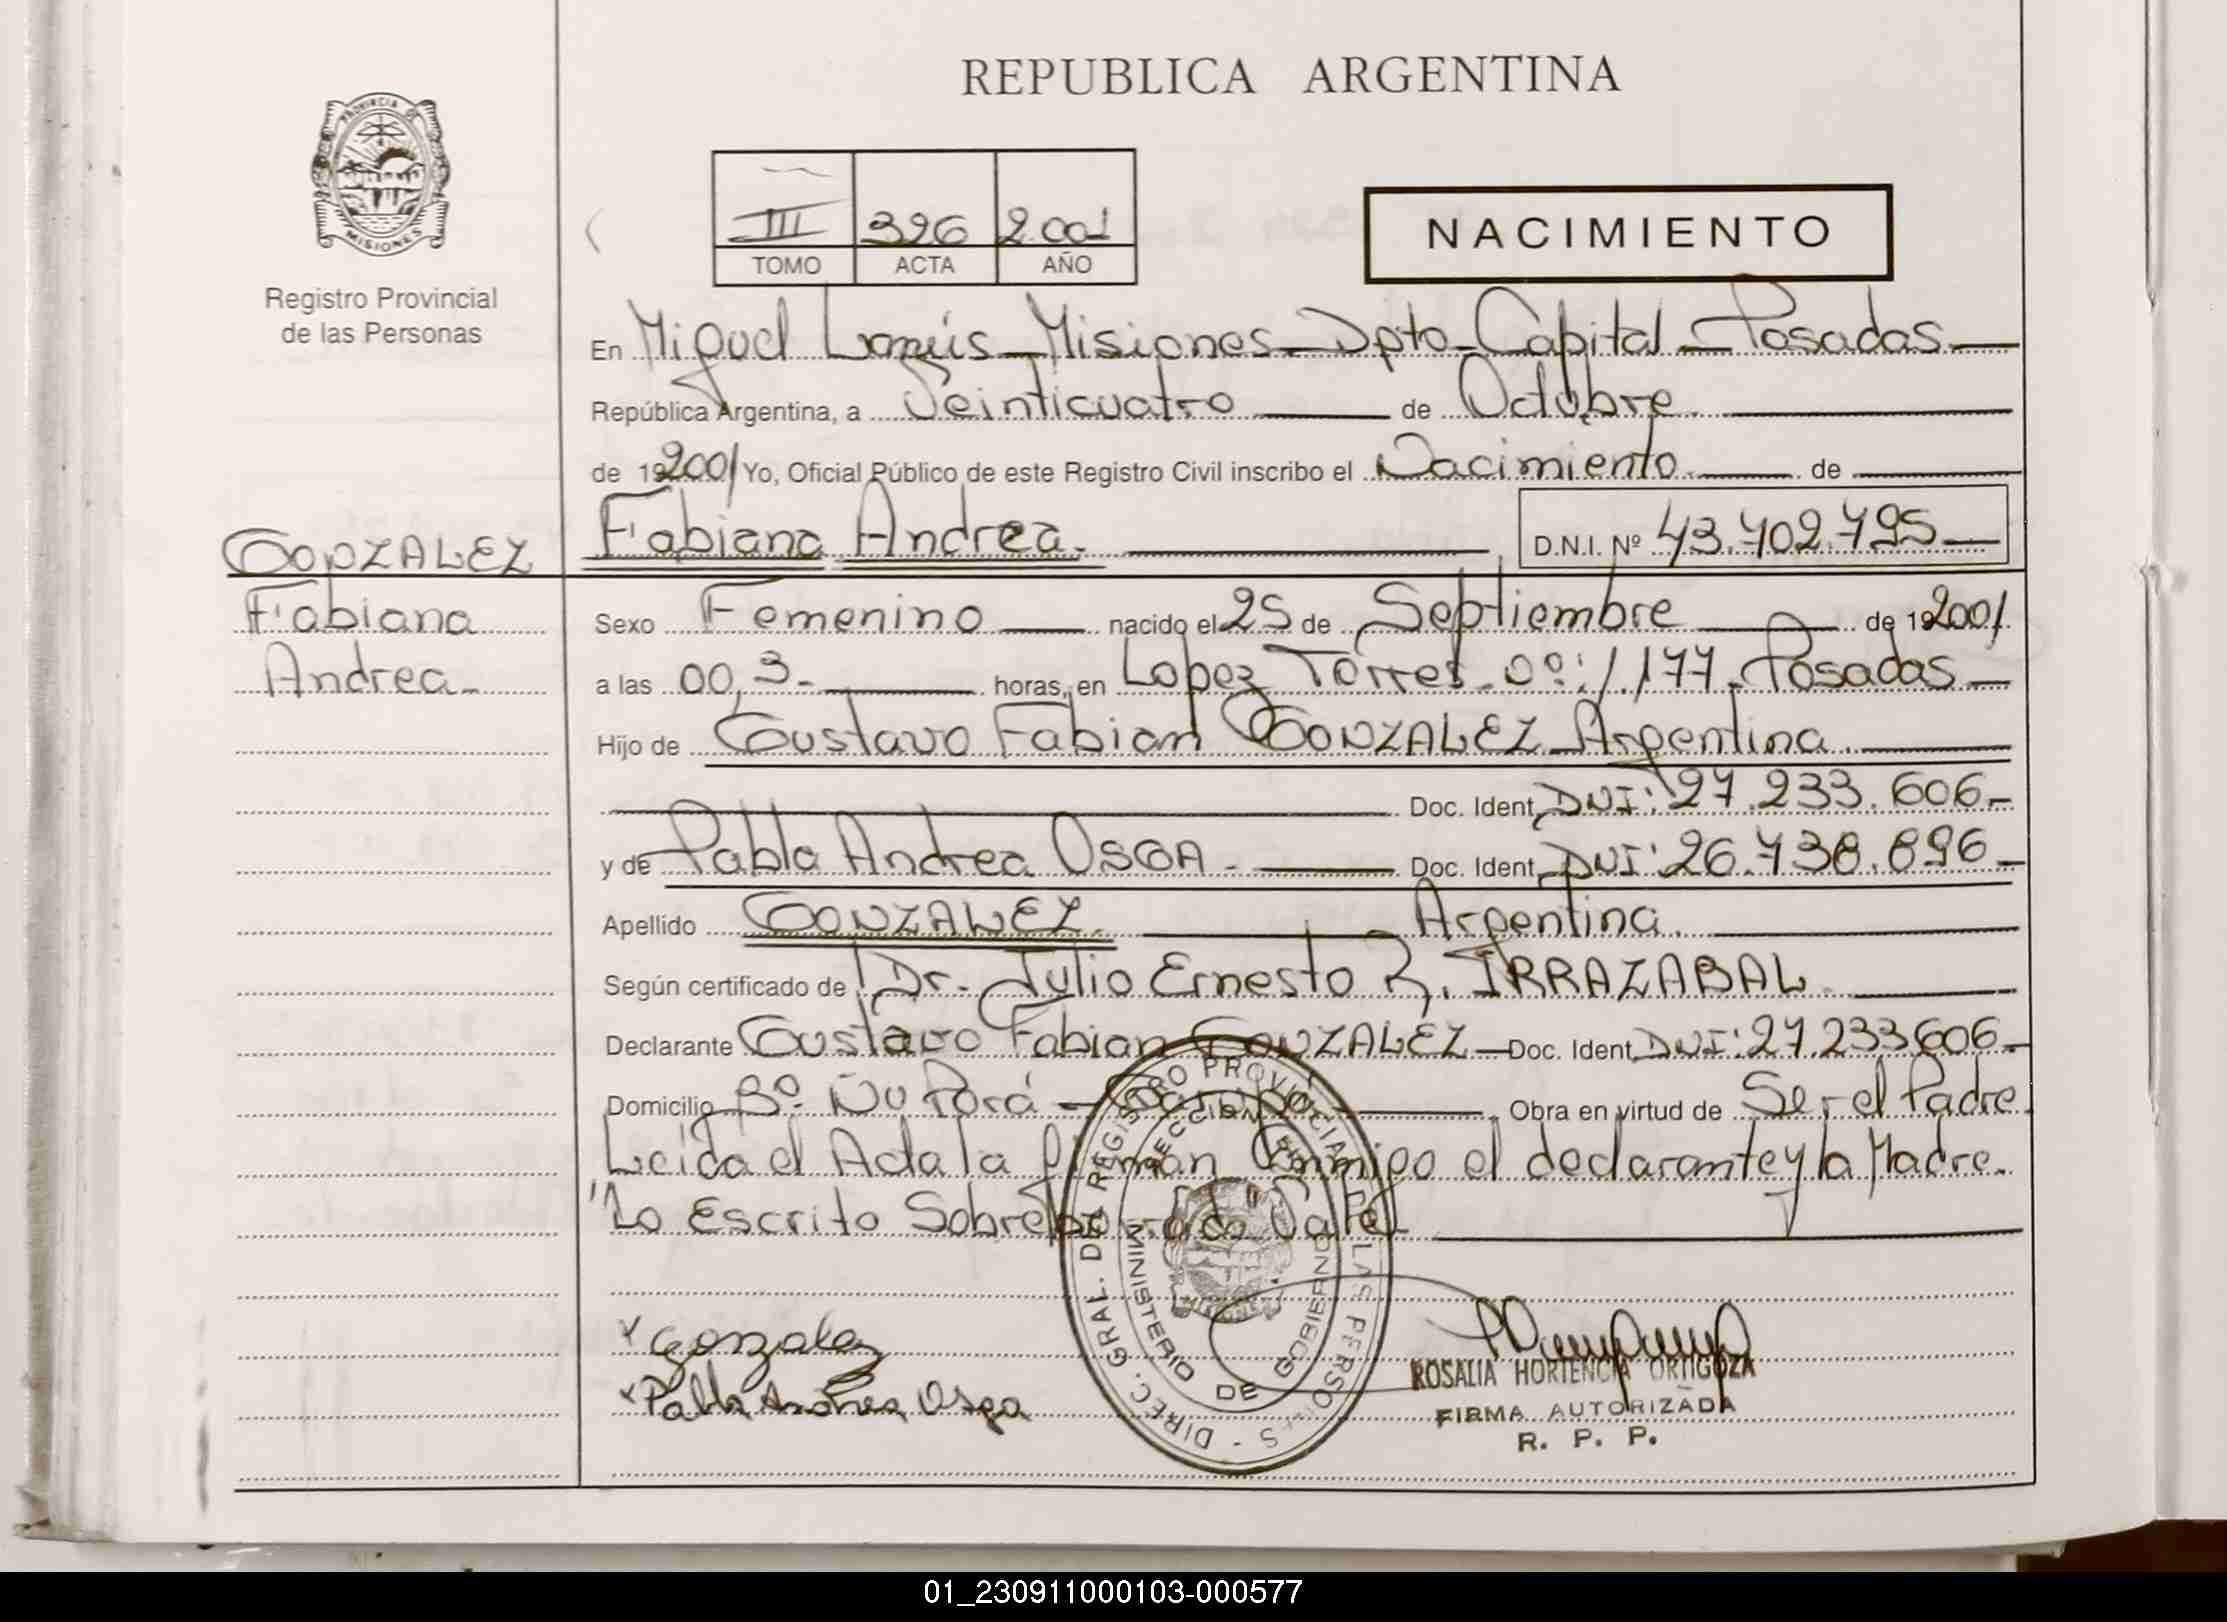 REPUBLICA ARGENTINA
PROVINCIA DE
MISIONES
Registro Provincial
de las Personas
III 326 2.001
TOMO ACTA AÑO
NACIMIENTO
En Miguel Lanús - Misiones - Dpto - Capital - Posadas
República Argentina, a Veinticuatro de Octubre.
de 19 2001 Yo, Oficial Público de este Registro Civil inscribo el Nacimiento. de
GONZALEZ Fabiana Andrea. D.N.I. Nº 43.702.795
Fabiana
Andrea
Sexo Femenino nacido el 25 de Septiembre de 19 2001
a las 00,3 horas, en Lopez Torres nº: 1.177 - Posadas
Hijo de Gustavo Fabian GONZALEZ - Argentina
Doc. Ident. DNI: 27.233.606
y de Pabla Andrea OSGA - Doc. Ident. DNI: 26.738.896
Apellido GONZALEZ. Argentina.
Según certificado de Dr. Julio Ernesto R. IRRAZABAL.
Declarante Gustavo Fabian GONZALEZ - Doc. Ident. DNI: 27.233.606
Domicilio Bº. Ñu Porá - Garupá - Obra en virtud de Ser el Padre
Leida el Acta la firman Conmigo el declarante y la Madre.
"Lo Escrito Sobre borrado Vale
Gonzalez
Pabla Andrea Osga
DIREC. GRAL. DEL REGISTRO PROVINCIAL DE LAS PERSONAS
MINISTERIO DE GOBIERNO
ROSALIA HORTENCIA ORTIGOZA
FIRMA AUTORIZADA
R. P. P.
01_230911000103-000577